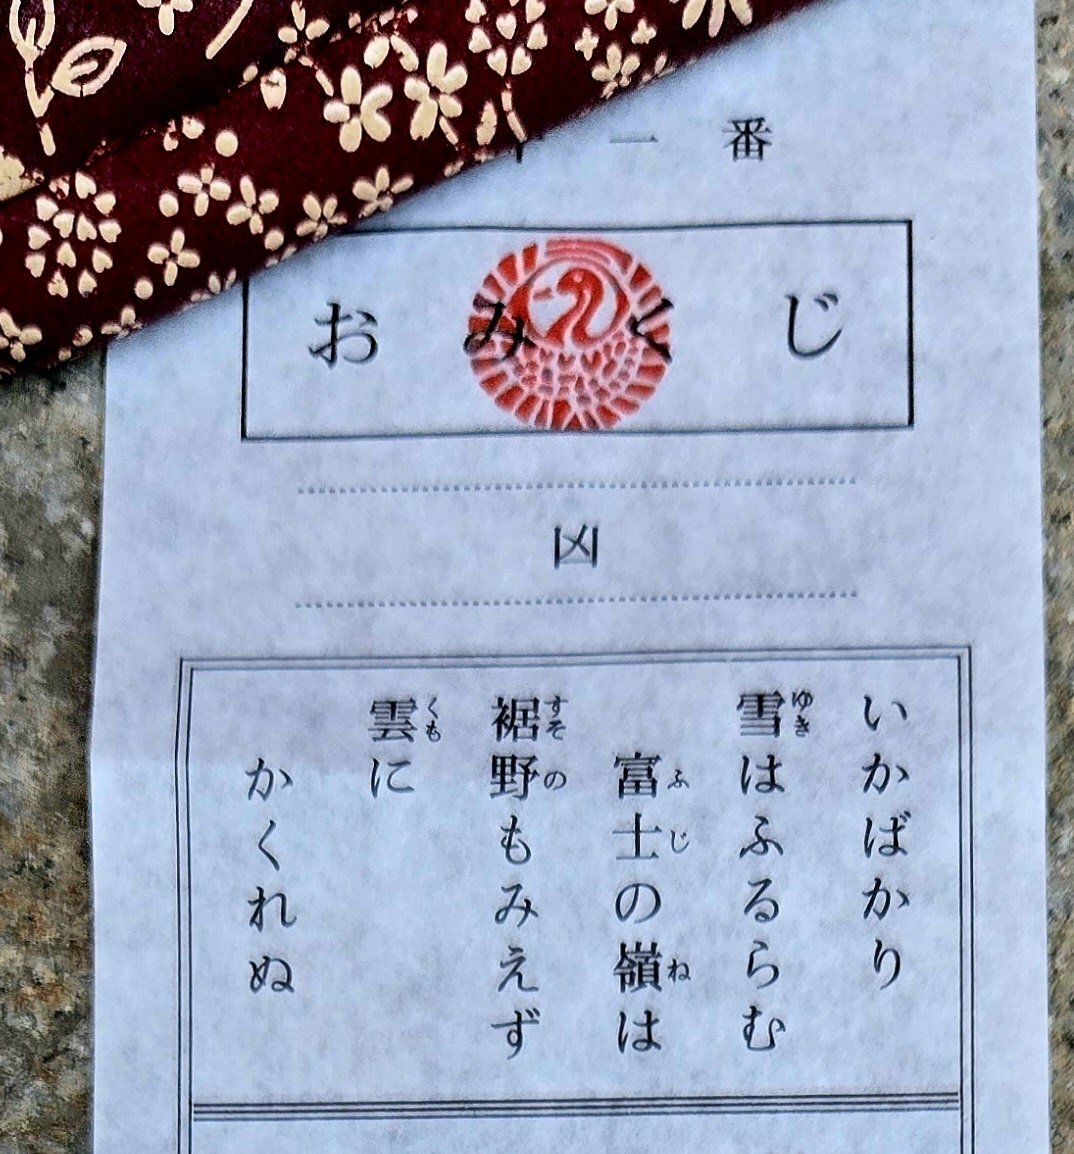 一番
おみくじ
凶
いかばかり
雪はふるらむ
富士の嶺は
裾野もみえず
雲に
かくれぬ
ゆき
ふじ
ね
すその
くも